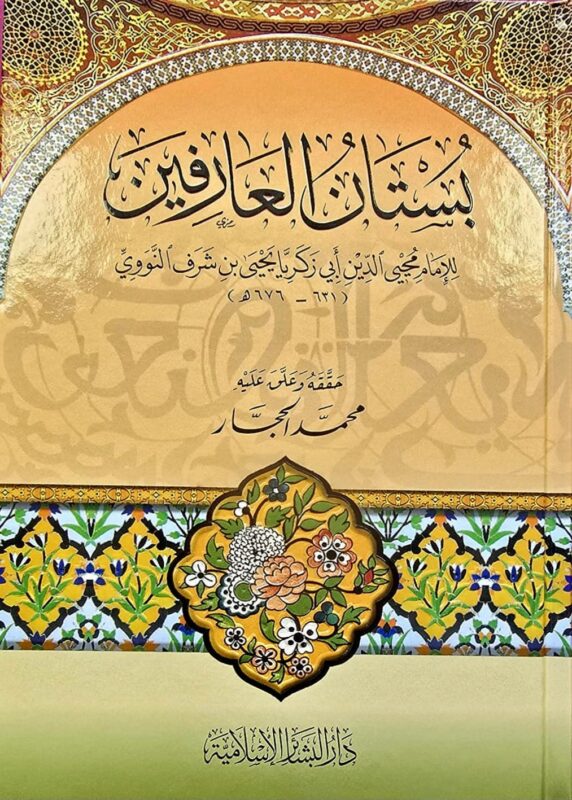 بُسْتَانُ العَارِفِين
لِلإِمَامِ مُحْيِي الدِّينِ أَبِي زَكَرِيَّا يَحْيَى بْنِ شَرَفِ النَّوَوِيِّ
(٦٣١ - ٦٧٦ هـ)
حَقَّقَهُ وَعَلَّقَ عَلَيْهِ
محمّد الحجّار
دَارُ البَشَائِرِ الإِسْلَامِيَّة